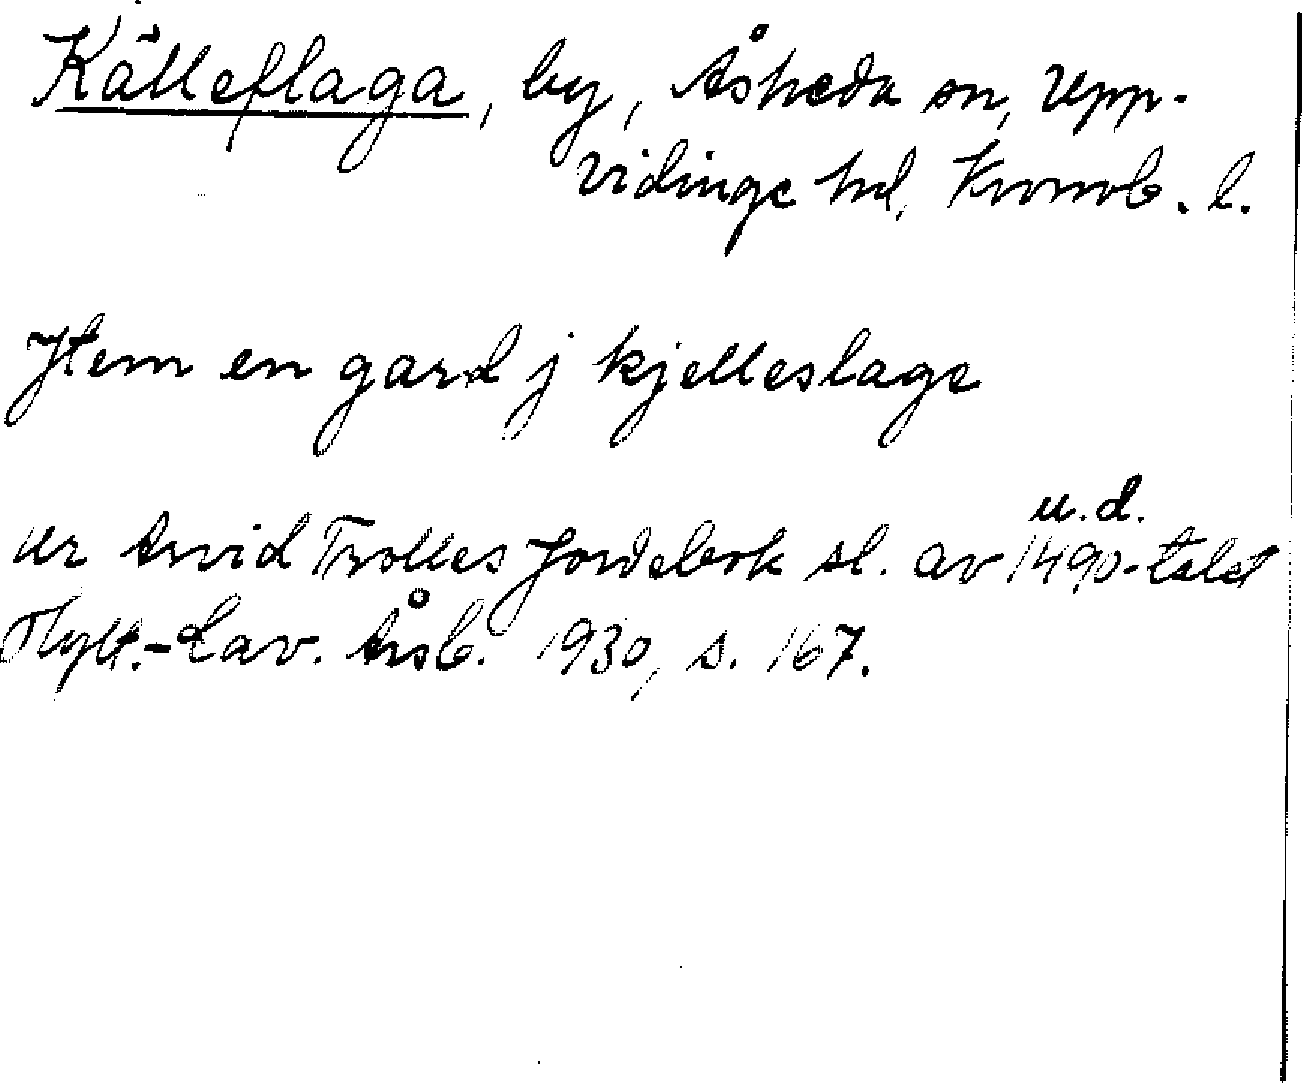 Källeflaga, by, Åsheda sn, Upp-
vidinge hd, Kronob. l.
Jtem en gard j kjelleslage
u.d.
ur Arvid Trolles Jordebok sl. av 1490-talet
Hylt.-Cav. Årsb. 1930, s. 167.